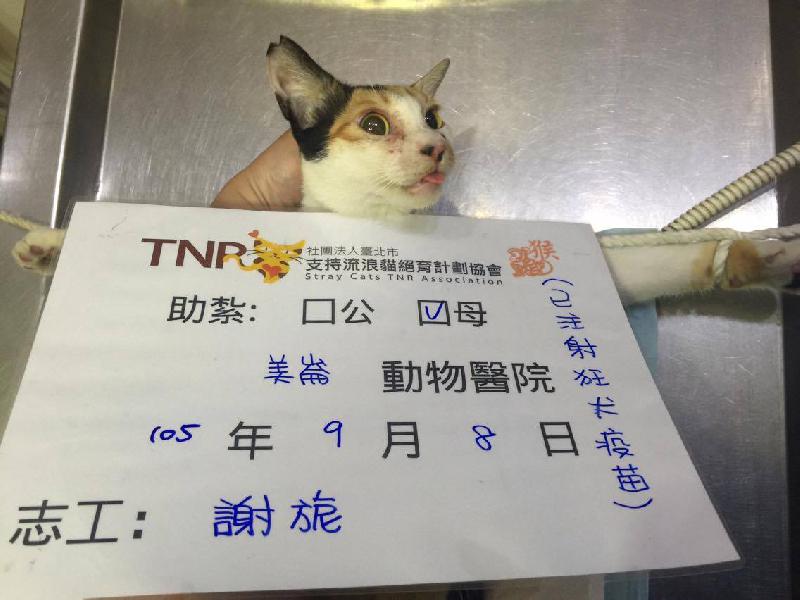 TNR 社團法人臺北市
支持流浪貓絕育計劃協會
Stray Cats TNR Association
猴
助紮: □公 ☑母
美崙 動物醫院
105 年 9 月 8 日
志工: 謝旎
(已注射狂犬疫苗)